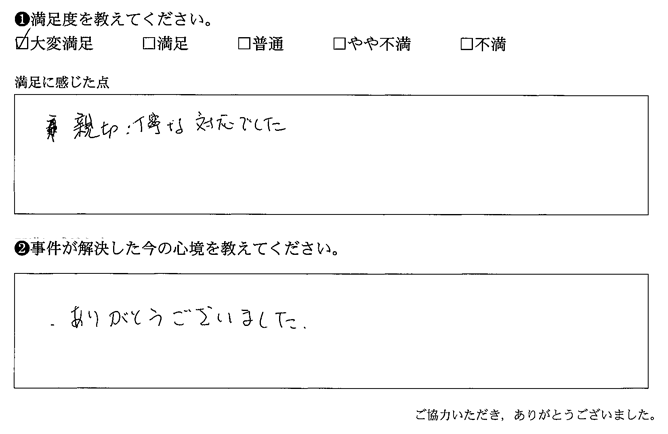 ❶満足度を教えてください。
☑大変満足 □満足 □普通 □やや不満 □不満
満足に感じた点
親切・丁寧な対応でした
❷事件が解決した今の心境を教えてください。
・ありがとうございました.
ご協力いただき，ありがとうございました。